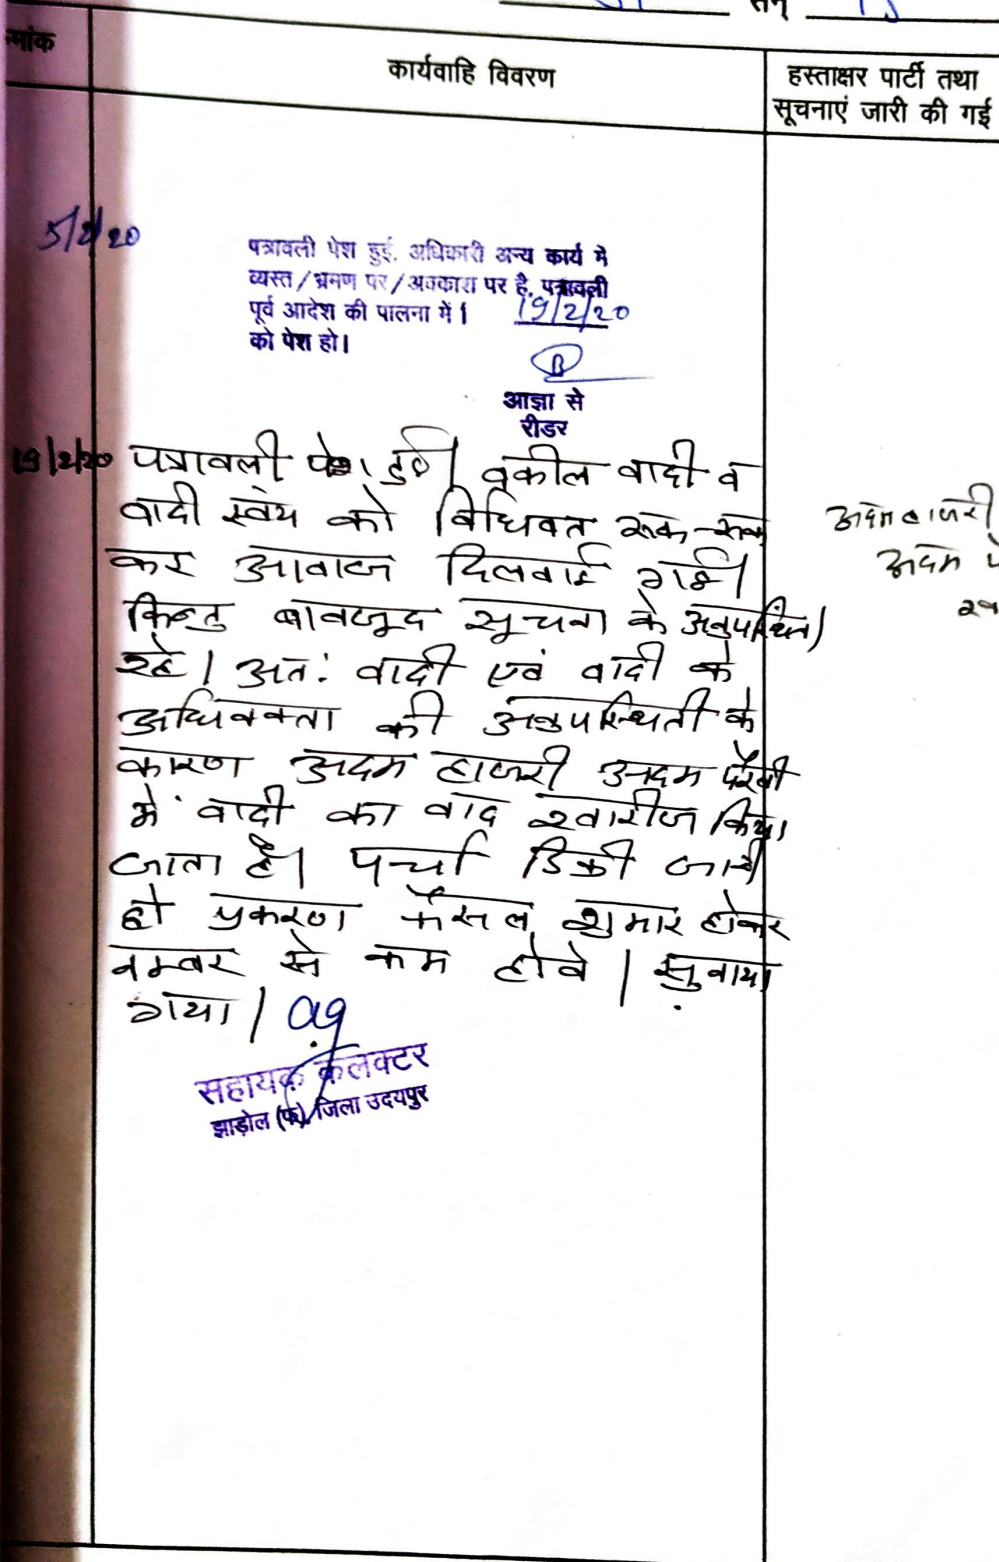 सन्
मांक
कार्यवाहि विवरण
हस्ताक्षर पार्टी तथा
सूचनाएं जारी की गई
5/2/20
पत्रावली पेश हुई. अधिकारी अन्य कार्य में
व्यस्त/भ्रमण पर/अवकाश पर है. पत्रावली
पूर्व आदेश की पालना में। 19/2/20
को पेश हो।
आज्ञा से
रीडर
19/2/20 पत्रावली पेश हुई। वकील वादी व
वादी स्वंय को विधिवत रूक-रूक
कर आवाज दिलवाई गई।
किन्तु बावजूद सूचना के अनुपस्थित
रहे। अतः वादी एवं वादी के
अधिवक्ता की अनुपस्थिती के
कारण अदम हाजरी अदम पैरवी
में वादी का वाद खारीज किया
जाता है। पर्चा डिक्री जारी
हो प्रकरण फैसल शुमार होकर
नम्बर से कम होवे। सुनाया
गया।
सहायक कलक्टर
झाड़ोल (फ.) जिला उदयपुर
अदम हाजरी
अदम पै